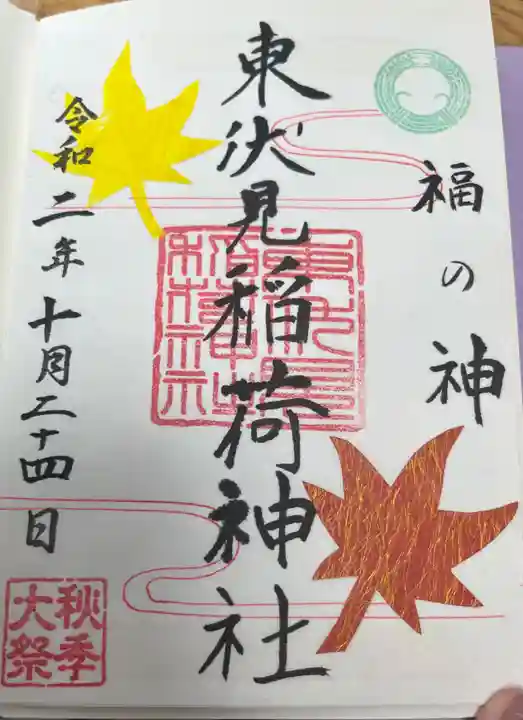 福の神
東伏見稲荷神社
令和二年十月二十四日
東伏見
稲荷神社
秋季
大祭